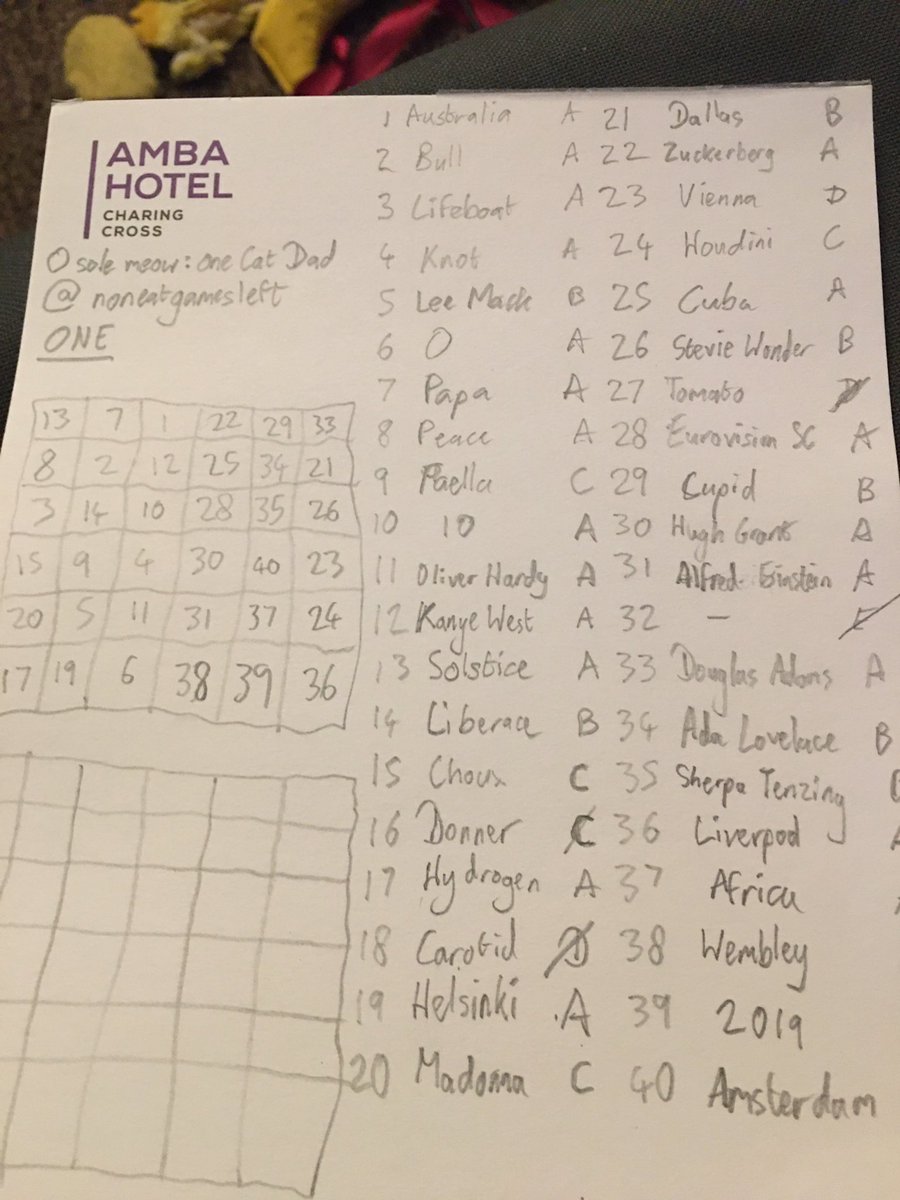 AMBA
HOTEL
CHARING
CROSS
O sole meow: one Cat Dad
@noneatgamesleft
ONE
13 7 1 22 29 33
8 2 12 25 34 21
3 14 10 28 35 26
15 9 4 30 40 23
20 5 11 31 37 24
17 19 6 38 39 36
1 Australia A
2 Bull A
3 Lifeboat A
4 Knot A
5 Lee Mack B
6 O A
7 Papa A
8 Peace A
9 Paella C
10 10 A
11 Oliver Hardy A
12 Kanye West A
13 Solstice A
14 Liberace B
15 Choux C
16 Donner C
17 Hydrogen A
18 Carotid D
19 Helsinki A
20 Madonna C
21 Dallas B
22 Zuckerberg A
23 Vienna D
24 Houdini C
25 Cuba A
26 Stevie Wonder B
27 Tomato D
28 Eurovision SC A
29 Cupid B
30 Hugh Grant A
31 Alfred Einstein A
32 - E
33 Douglas Adams A
34 Ada Lovelace B
35 Sherpa Tenzing
36 Liverpool A
37 Africa
38 Wembley
39 2019
40 Amsterdam